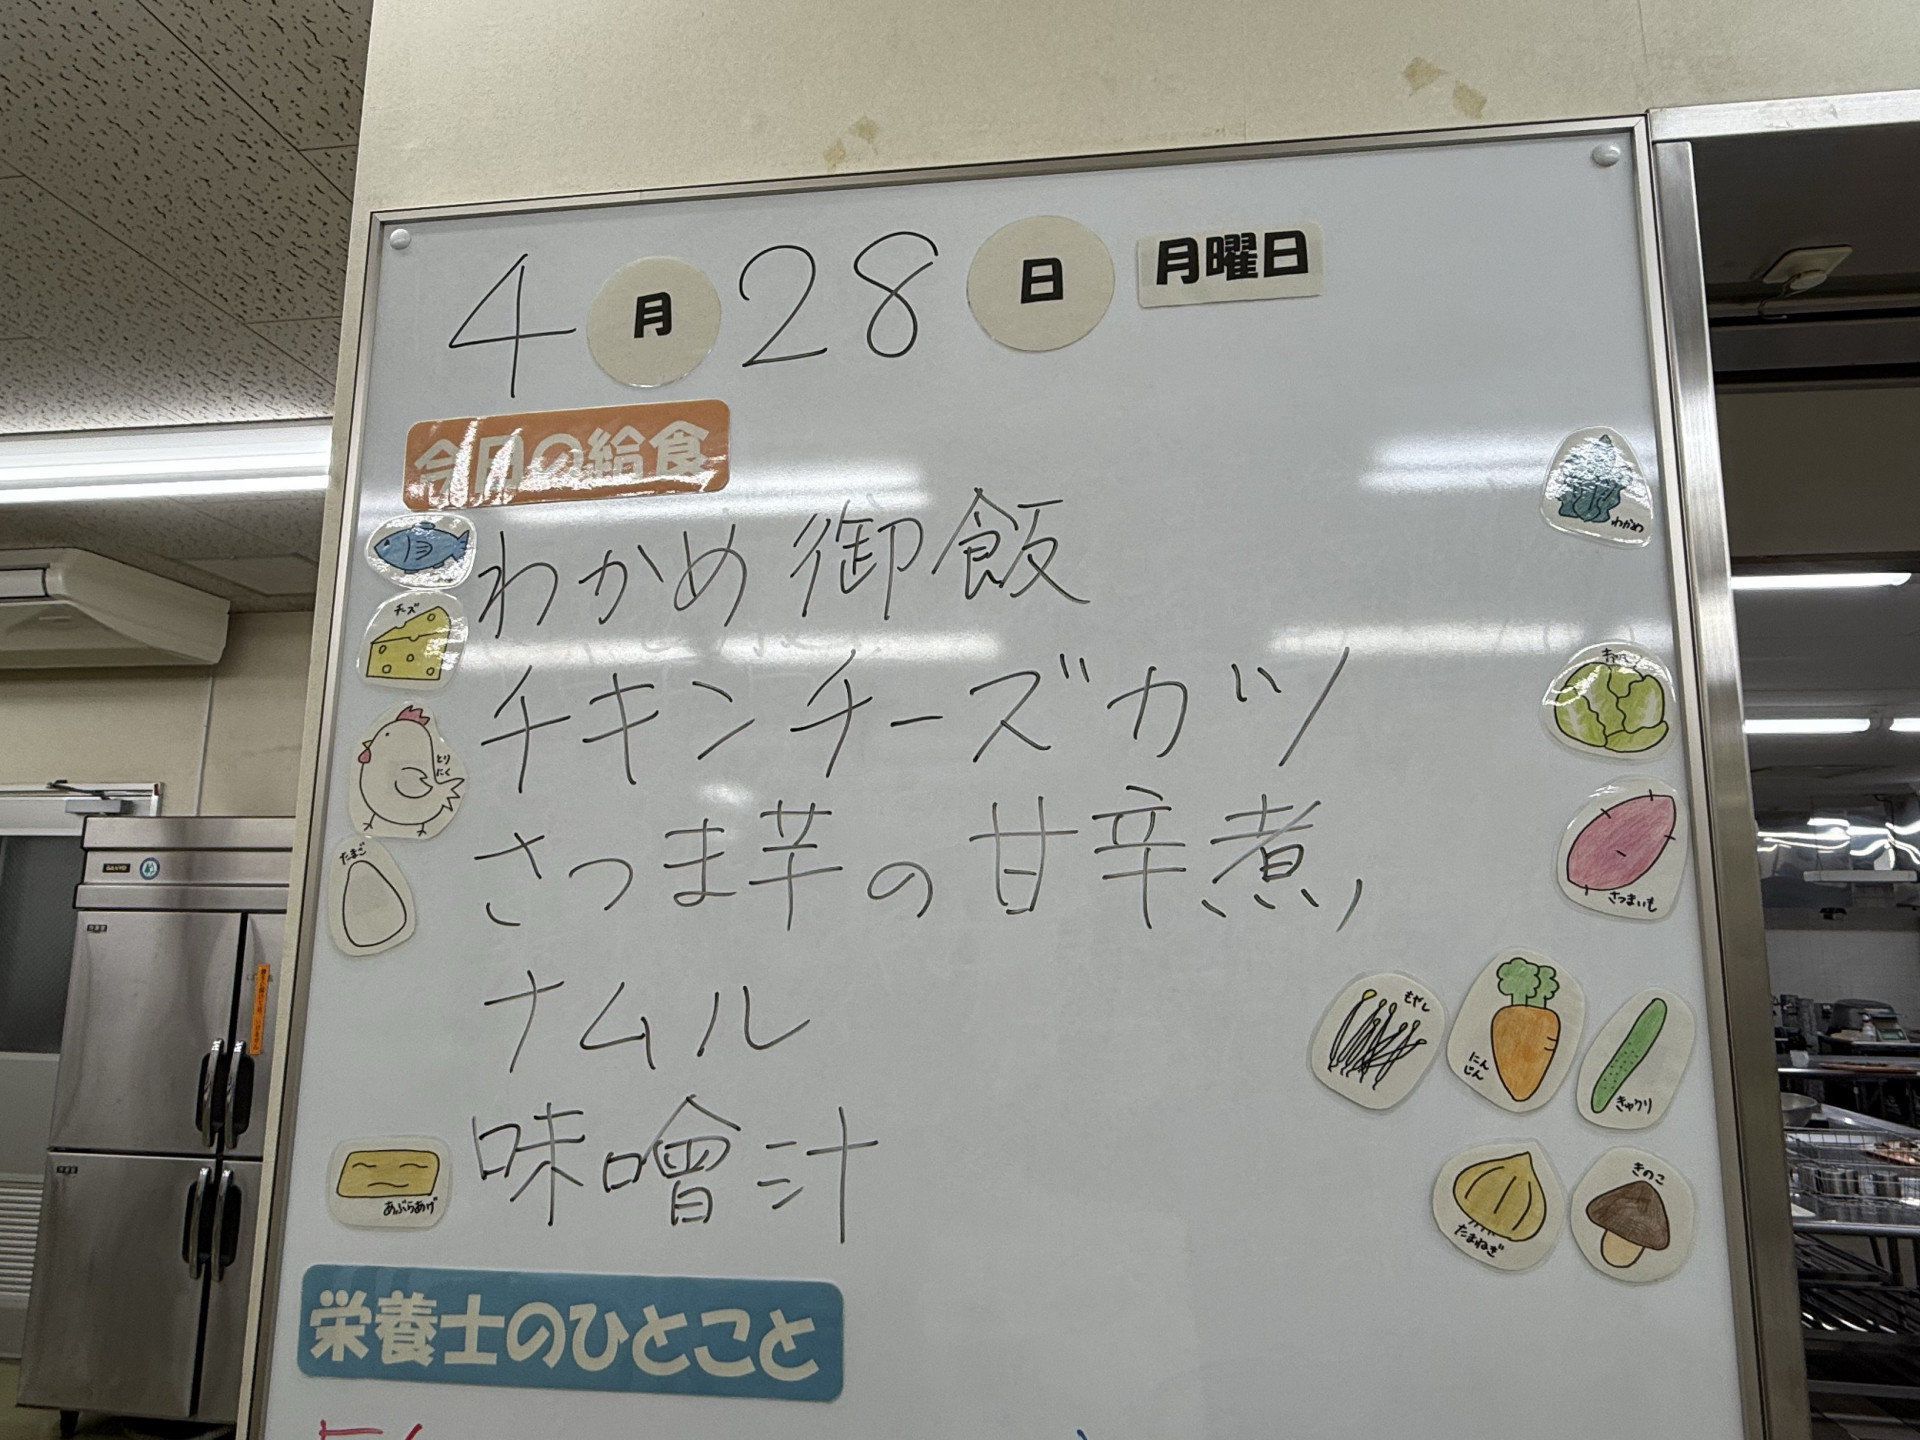 4月28日 月曜日
今日の給食
わかめ御飯
わかめ
チーズ
チキンチーズカツ
とりにく
さつま芋の甘辛煮
たまご
さつまいも
ナムル
もやし
にんじん
きゅうり
味噌汁
あぶらあげ
たまねぎ
きのこ
栄養士のひとこと
SANYO